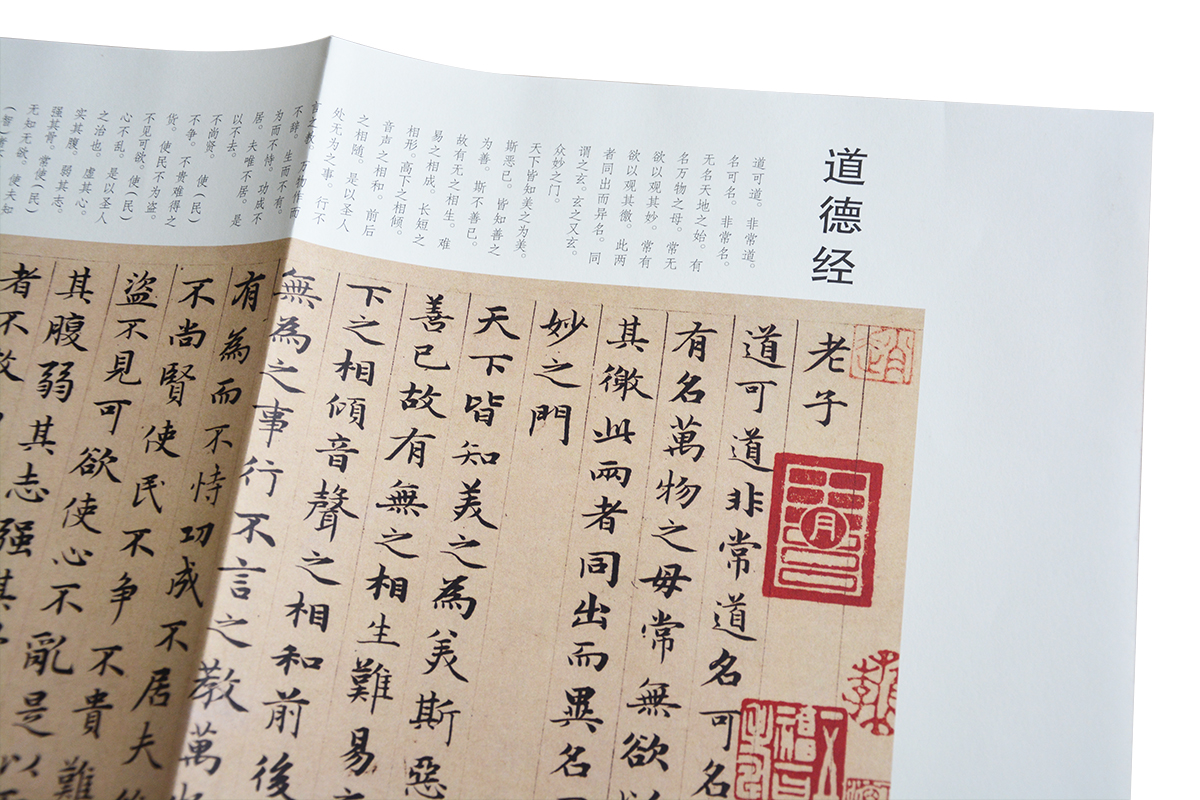 道德经
道可道。非常道。
名可名。非常名。
无名天地之始。有
名万物之母。常无
欲以观其妙。常有
欲以观其徼。此两
者同出而异名。同
谓之玄。玄之又玄。
众妙之门。
天下皆知美之为美。
斯恶已。皆知善之
为善。斯不善已。
故有无之相生。难
易之相成。长短之
相形。高下之相倾。
音声之相和。前后
之相随。是以圣人
处无为之事。行不
言之教。万物作而
不辞。生而不有。
为而不恃。功成不
居。夫唯不居。是
以不去。
不尚贤。使(民)
不争。不贵难得之
货。使民不为盗。
不见可欲。使(民)
心不乱。是以圣人
之治也。虚其心。
实其腹。弱其志。
强其骨。常使(民)
无知无欲。使夫知
(智)
老子
道可道非常道名可名
有名萬物之母常無欲以
其徼此兩者同出而異名
妙之門
天下皆知美之為美斯惡
善已故有無之相生難易之
下之相傾音聲之相和前後
無為之事行不言之教萬
有為而不恃功成不居夫
不尚賢使民不争不貴難
盜不見可欲使心不亂是以
其腹弱其志强其
者不敢